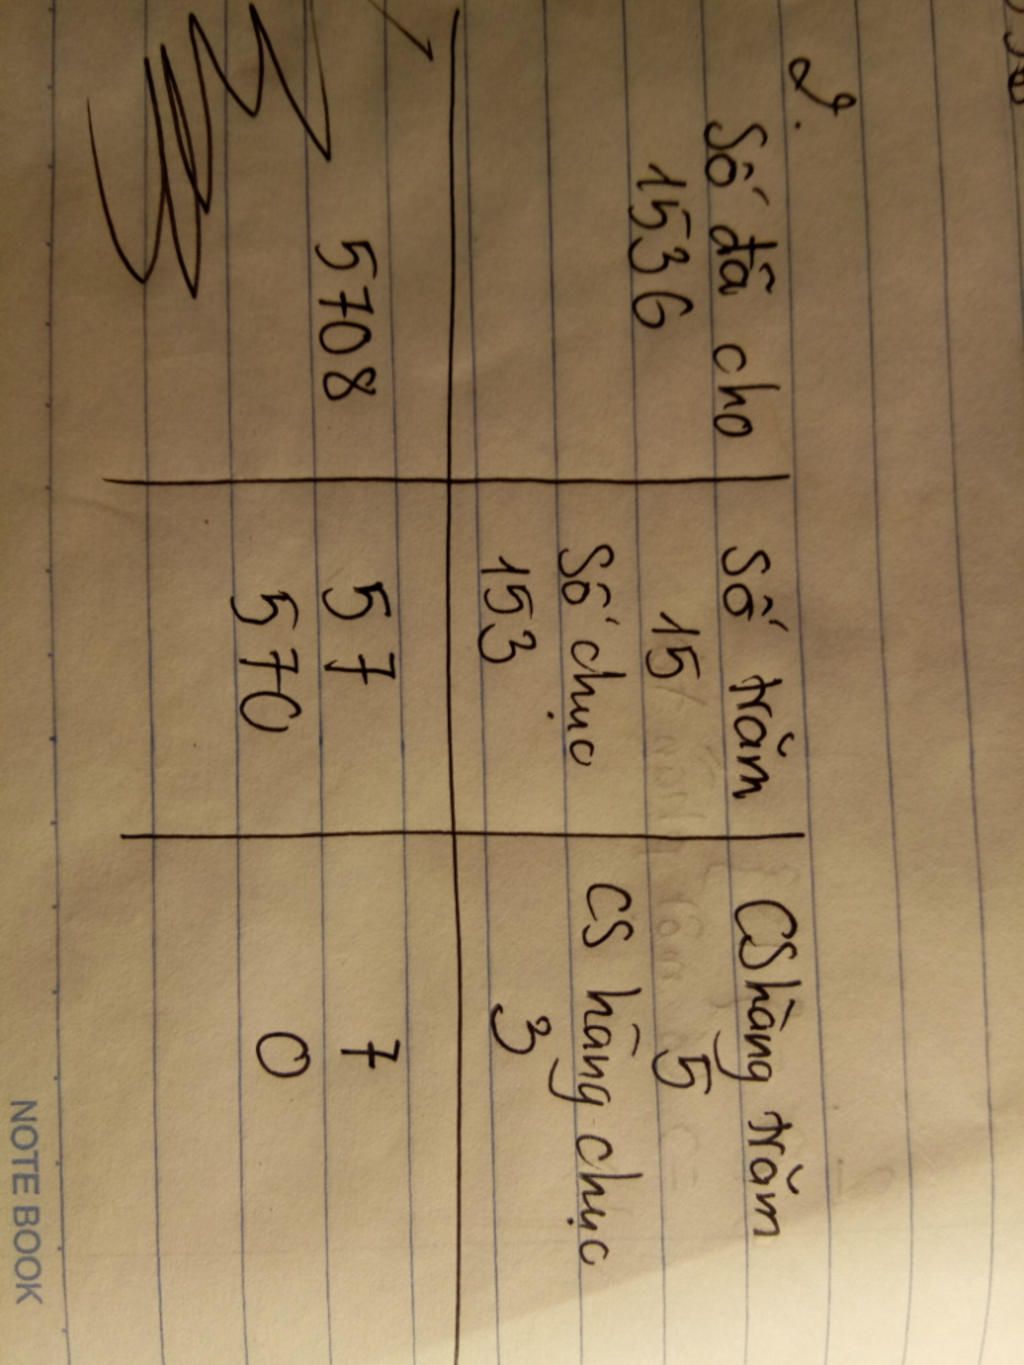 2.
Số đã cho
Số trăm
CS hàng trăm
1536
15
5
Số chục
CS hàng chục
153
3
5708
57
7
570
0
NOTE BOOK